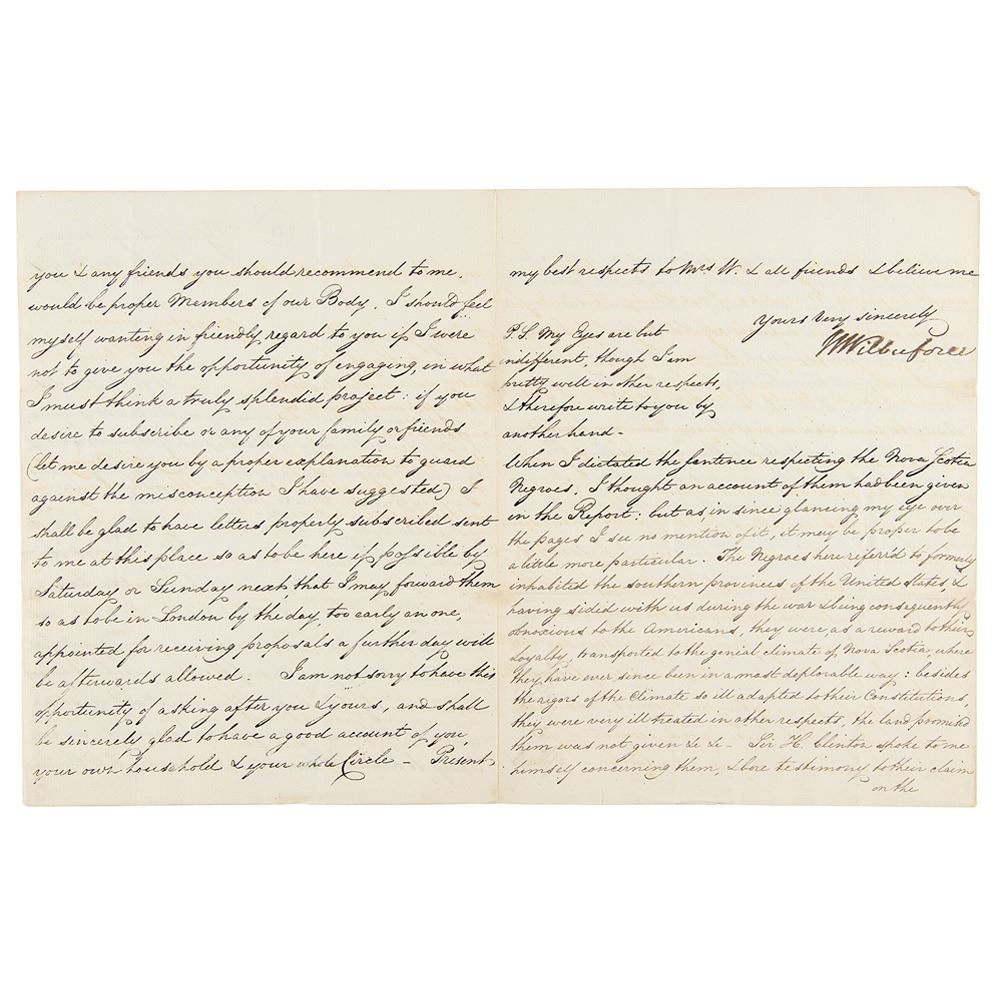 you & any friends you should recommend to me,
would be proper Members of our Body. I should feel
myself wanting in friendly regard to you if I were
not to give you the opportunity of engaging, in what
I must think a truly splendid project: if you
desire to subscribe or any of your family or friends
(let me desire you by a proper explanation to guard
against the misconception I have suggested) I
shall be glad to have letters properly subscribed sent
to me at this place so as to be here if possible by
Saturday or Sunday next that I may forward them
so as to be in London by the day, too early an one,
appointed for receiving proposals a further day will
be afterwards allowed. I am not sorry to have this
opportunity of asking after you & yours, and shall
be sincerely glad to have a good account of you,
your own household & your whole Circle - Present
my best respects to Mrs W. & all friends & believe me
Yours very sincerely
W Wilberforce
P.S. My Eyes are but
indifferent, though I am
pretty well in other respects,
& therefore write to you by
another hand -
When I dictated the Sentence respecting the Nova Scotia
Negroes, I thought an account of them had been given
in the Report: but as in since glancing my eye over
the pages I see no mention of it, it may be proper to be
a little more particular. The Negroes here referd to formerly
inhabited the southern provinces of the United States, &
having sided with us during the war & being consequently
obnoxious to the Americans, they were, as a reward to their
Loyalty, transported to the genial climate of Nova Scotia, where
they have ever since been in a most deplorable way: besides
the rigors of the Climate so ill adapted to their Constitutions,
they were very ill treated in other respects, the land promised
them was not given &c &c - Sir H. Clinton spoke to me
himself concerning them, & bore testimony to their claim
on the